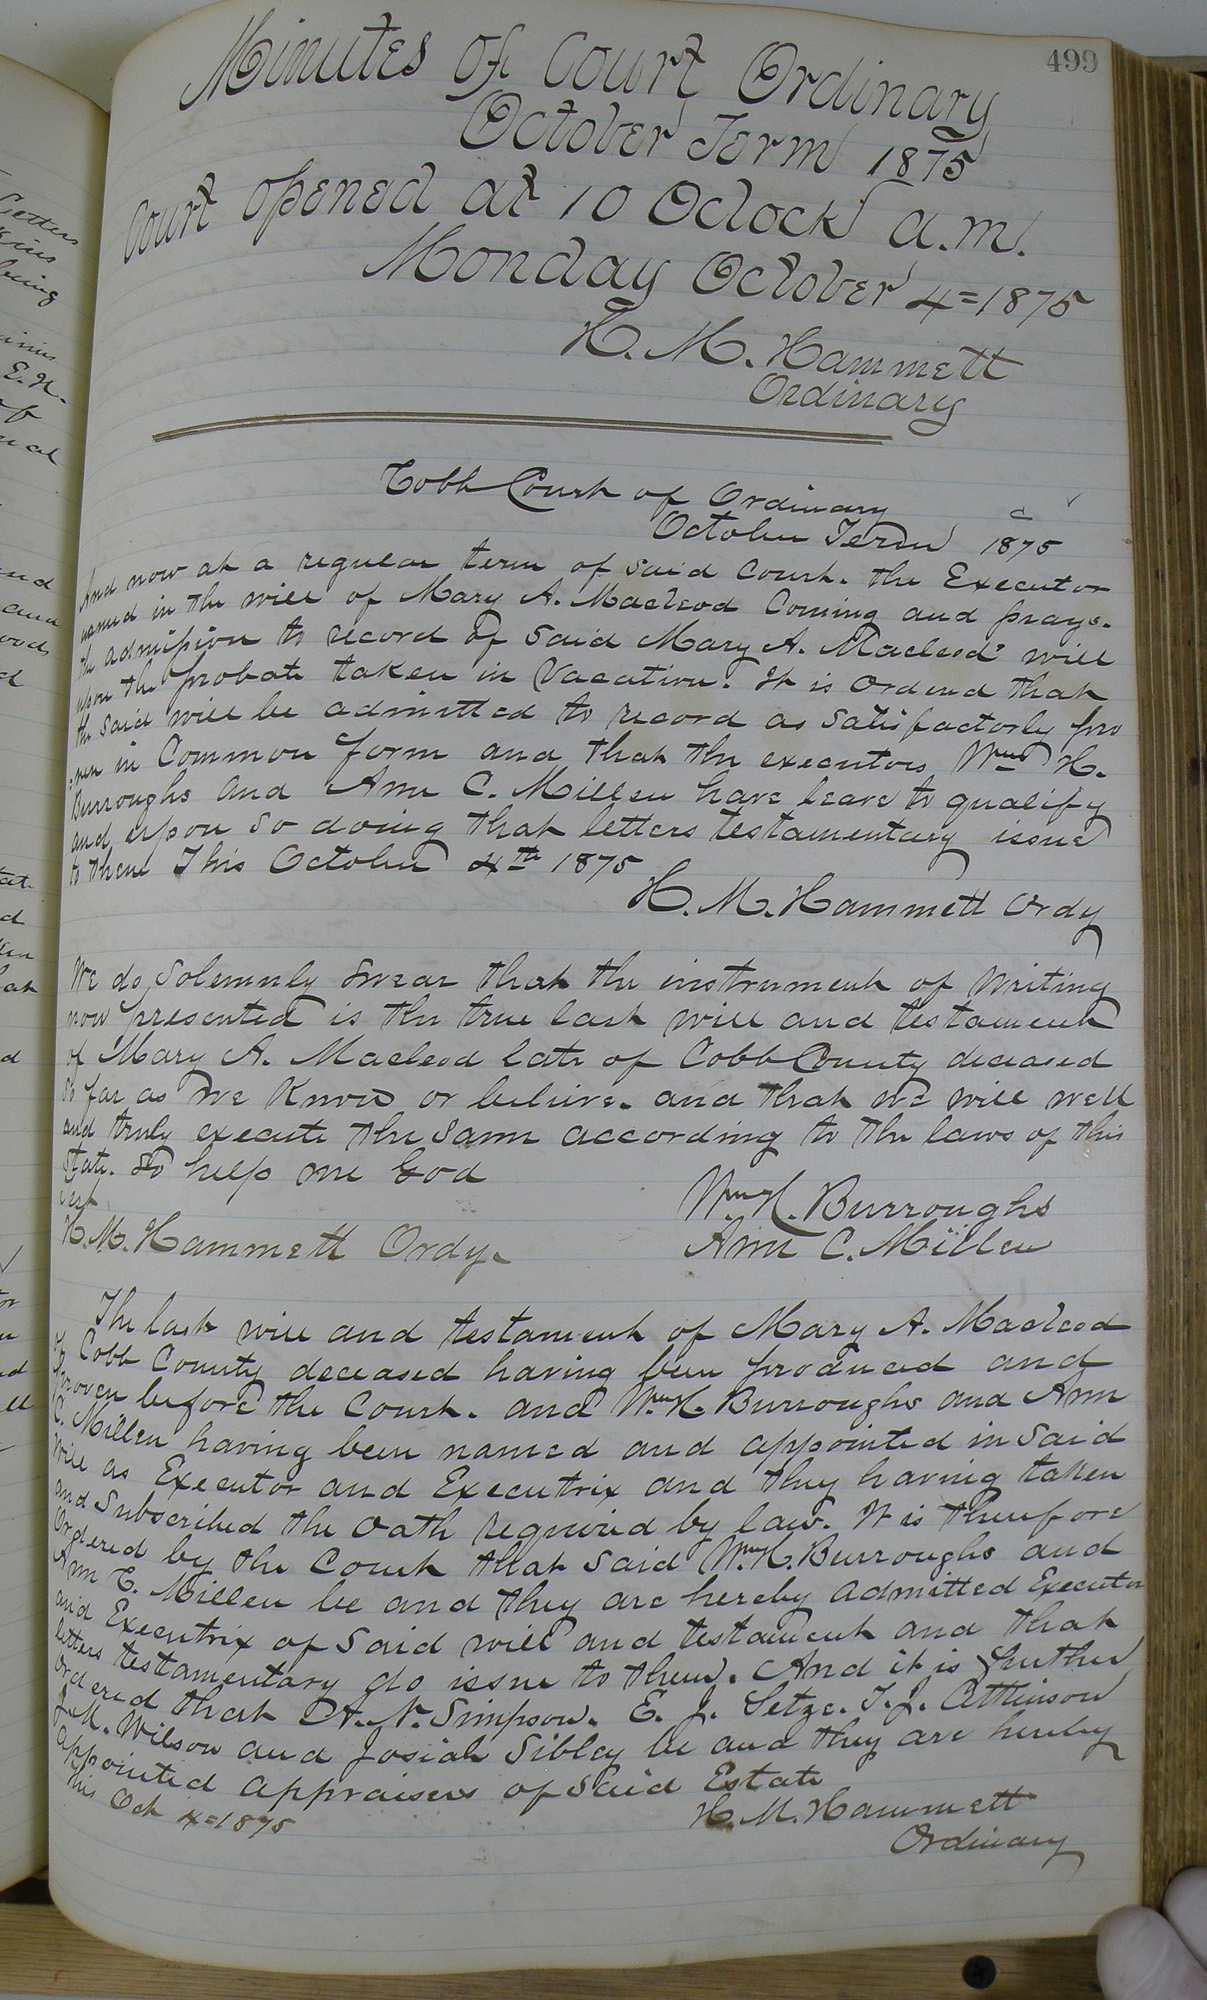 499
Minutes of Court Ordinary
October Term 1875
Court opened at 10 Oclock a.m.
Monday October 4=1875
H. M. Hammett
Ordinary
Cobb Court of Ordinary
October Term 1875
And now at a regular term of said Court. the Executor
named in the will of Mary A. Macleod Coming and prays.
the admission to record of said Mary A. Macleods will
upon the probate taken in Vacation. It is ordered that
the said will be admitted to record as satisfactorly pro
:ven in Common form and that the executors Wm H.
Burroughs and Ann C. Millen have leave to qualify
and upon so doing that letters testamentary issue
to them This October 4th 1875
H. M. Hammett Ordy
We do Solemnly swear that the instrument of writing
now presented is the true last will and testament
of Mary A. Macleod late of Cobb County deceased
So far as we Know or believe. and that we will well
and truly execute the same according to the laws of this
State. So help me God
Test
Wm H. Burroughs
H. M. Hammett Ordy.
Ann C. Millen
The last will and testament of Mary A. Macleod
of Cobb County deceased having been produced and
proven before the Court. and Wm H. Burroughs and Ann
C. Millen having been named and appointed in said
will as Executor and Executrix and they having taken
and Subscribed the oath required by law. It is therefore
Ordered by the Court that said Wm H. Burroughs and
Ann C. Millen be and they are hereby admitted Executor
and Executrix of said will and testament and that
letters testamentary do issue to them. And it is further
Ordered that A. N. Simpson. E. J. Setze. T. J. Atkinson
J. M. Wilson and Josiah Sibley be and they are hereby
appointed appraisers of said Estate
This Oct 4=1875
H. M. Hammett
Ordinary